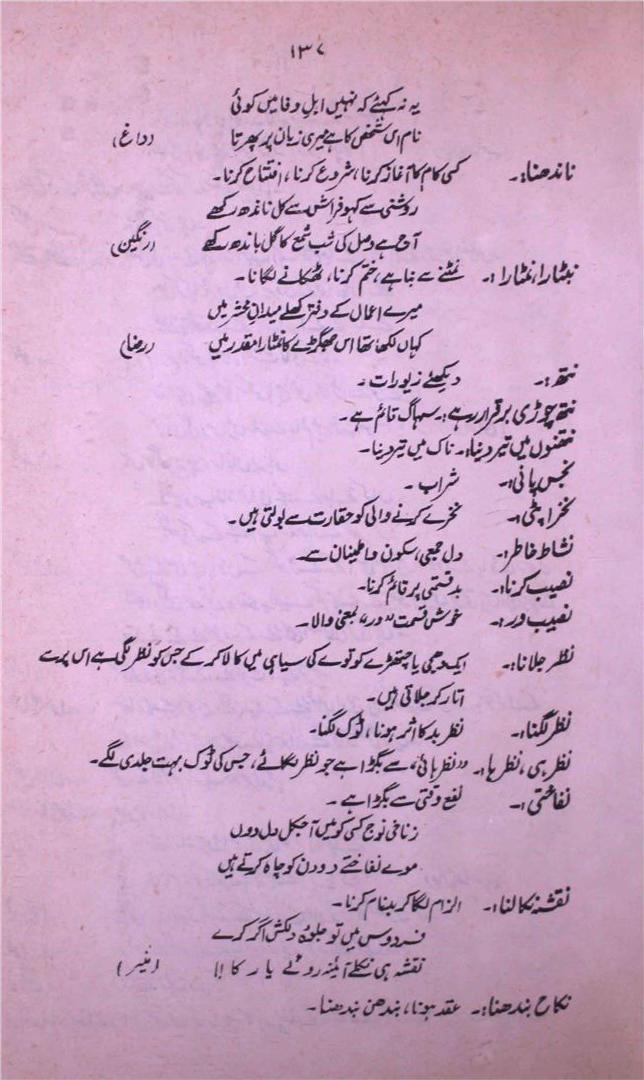 ۱۳۷
یہ نہ کہئے کہ نہیں اہلِ وفا میں کوئی
نام اس شخص کا ہے میری زبان پر پھرتا (داغ)
ناندھنا:۔ کسی کام کا آغاز کرنا، شروع کرنا، افتتاح کرنا۔
روشنی سے کہو فراش سے کل ناندھ رکھے
آج ہے وصل کی شب شمع کا گل باندھ رکھے (رنگین)
نبٹارا، نمٹارا:۔ نمٹنے سے بنا ہے، ختم کرنا، ٹھکانے لگانا۔
میرے اعمال کے دفتر کھلے میدانِ محشر میں
کہاں لکھا تھا اس جھگڑے کا نمٹارا مقدر میں (رضا)
نتھ:۔ دیکھئے زیورات۔
نتھ چوڑی برقرار رہے:۔ سہاگ قائم ہے۔
نتھنوں میں تیر دینا:۔ ناک میں تیر دینا۔
نجس پانی:۔ شراب۔
نخرا پٹی:۔ نخرے کرنے والی کو حقارت سے بولتی ہیں۔
نشاط خاطر:۔ دل جمعی، سکون و اطمینان سے۔
نصیب کرنا:۔ بدقسمتی پر قائم کرنا۔
نصیب ور:۔ خوش قسمت "ور" بمعنی والا۔
نظر جلانا:۔ ایک دھجی یا چیتھڑے کو توے کی سیاہی میں کالا کر کے جس کو نظر لگی ہے اس پر سے
اتار کر جلاتی ہیں۔
نظر لگنا:۔ نظر بد کا اثر ہونا، ٹوک لگنا۔
نظر ہی، نظر ہا:۔ "نظر ہائی" سے بگڑا ہے جو نظر لگائے، جس کی ٹوک بہت جلدی لگے۔
نفاختی:۔ لفع وقتی سے بگڑا ہے۔
زناخی نوج کسی کو میں آجکل دل دوں
موے نفاختے دو دن کو چاہ کرتے ہیں
نقشہ نکالنا:۔ الزام لگا کر بدنام کرنا۔
فردوس میں تو جلوۂ دلکش اگر کرے
نقشہ ہی نکلے آئینہ روئے یار کا!! (منیر)
نکاح بندھنا:۔ عقد ہونا، بندھن بندھنا۔